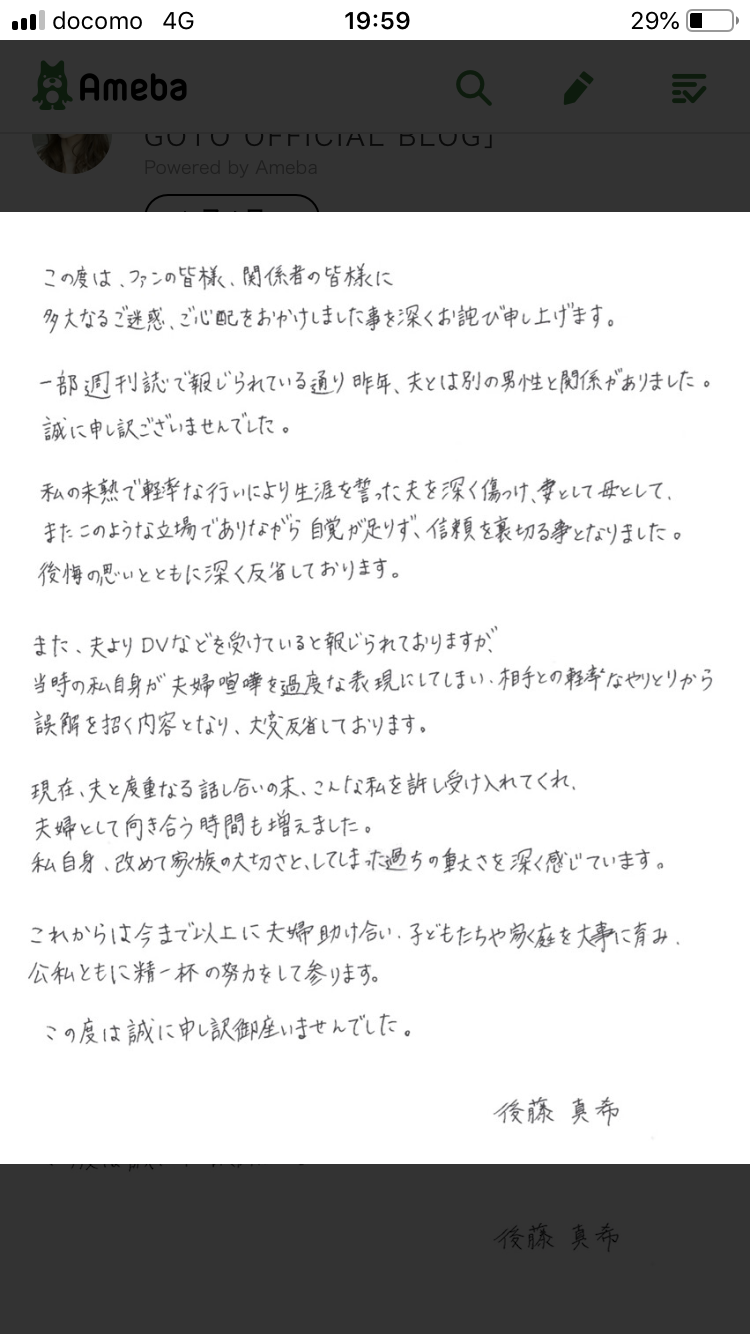 docomo 4G 19:59 29%
Ameba
GOTO OFFICIAL BLOG」
Powered by Ameba
この度は、ファンの皆様、関係者の皆様に
多大なるご迷惑、ご心配をおかけしました事を深くお詫び申し上げます。
一部週刊誌で報じられている通り昨年、夫とは別の男性と関係がありました。
誠に申し訳ございませんでした。
私の未熟で軽率な行いにより生涯を誓った夫を深く傷つけ、妻として母として、
またこのような立場でありながら自覚が足りず、信頼を裏切る事となりました。
後悔の思いとともに深く反省しております。
また、夫よりDVなどを受けていると報じられておりますが、
当時の私自身が夫婦喧嘩を過度な表現にしてしまい、相手との軽率なやりとりから
誤解を招く内容となり、大変反省しております。
現在、夫と度重なる話し合いの末、こんな私を許し受け入れてくれ、
夫婦として向き合う時間も増えました。
私自身、改めて家族の大切さと、してしまった過ちの重大さを深く感じています。
これからは今まで以上に夫婦助け合い、子どもたちや家庭を大事に育み、
公私ともに精一杯の努力をして参ります。
この度は誠に申し訳御座いませんでした。
後藤 真希
後藤 真希